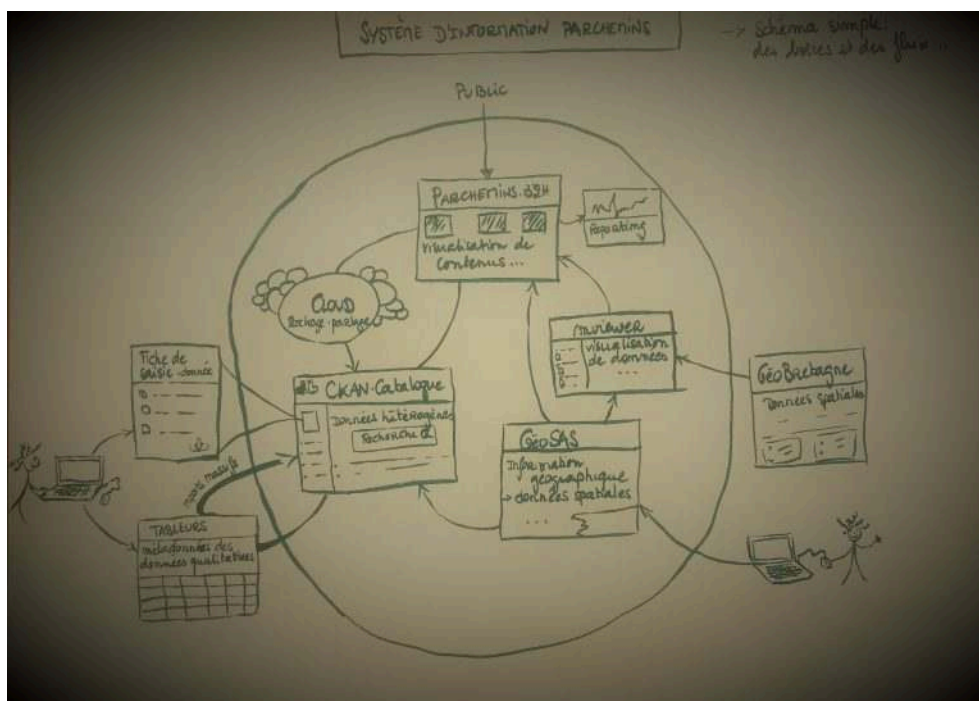 SYSTÈME D'INFORMATION PARCHEMINS
-> Schéma simple:
des boîtes et des flux...
PUBLIC
PARCHEMINS.
visualisation de
contenus...
Reporting
CLOUD
Stockage-partage
mviewer
visualisation
de données
...
Fiche de
saisie-donnée
CKAN-Catalogue
Données hétérogènes
Recherche
GéoBretagne
Données spatiales
GéoSAS
Information
géographique
-> données spatiales
...
imports massifs
TABLEURS
métadonnées des
données qualitatives